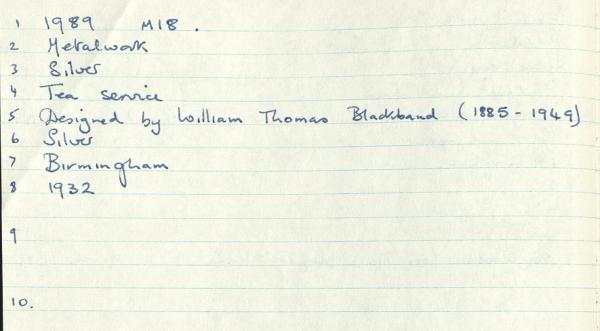 1 1989 M18.
2 Metalwork
3 Silver
4 Tea service
5 Designed by William Thomas Blackband (1885-1949)
6 Silver
7 Birmingham
8 1932
9
10.